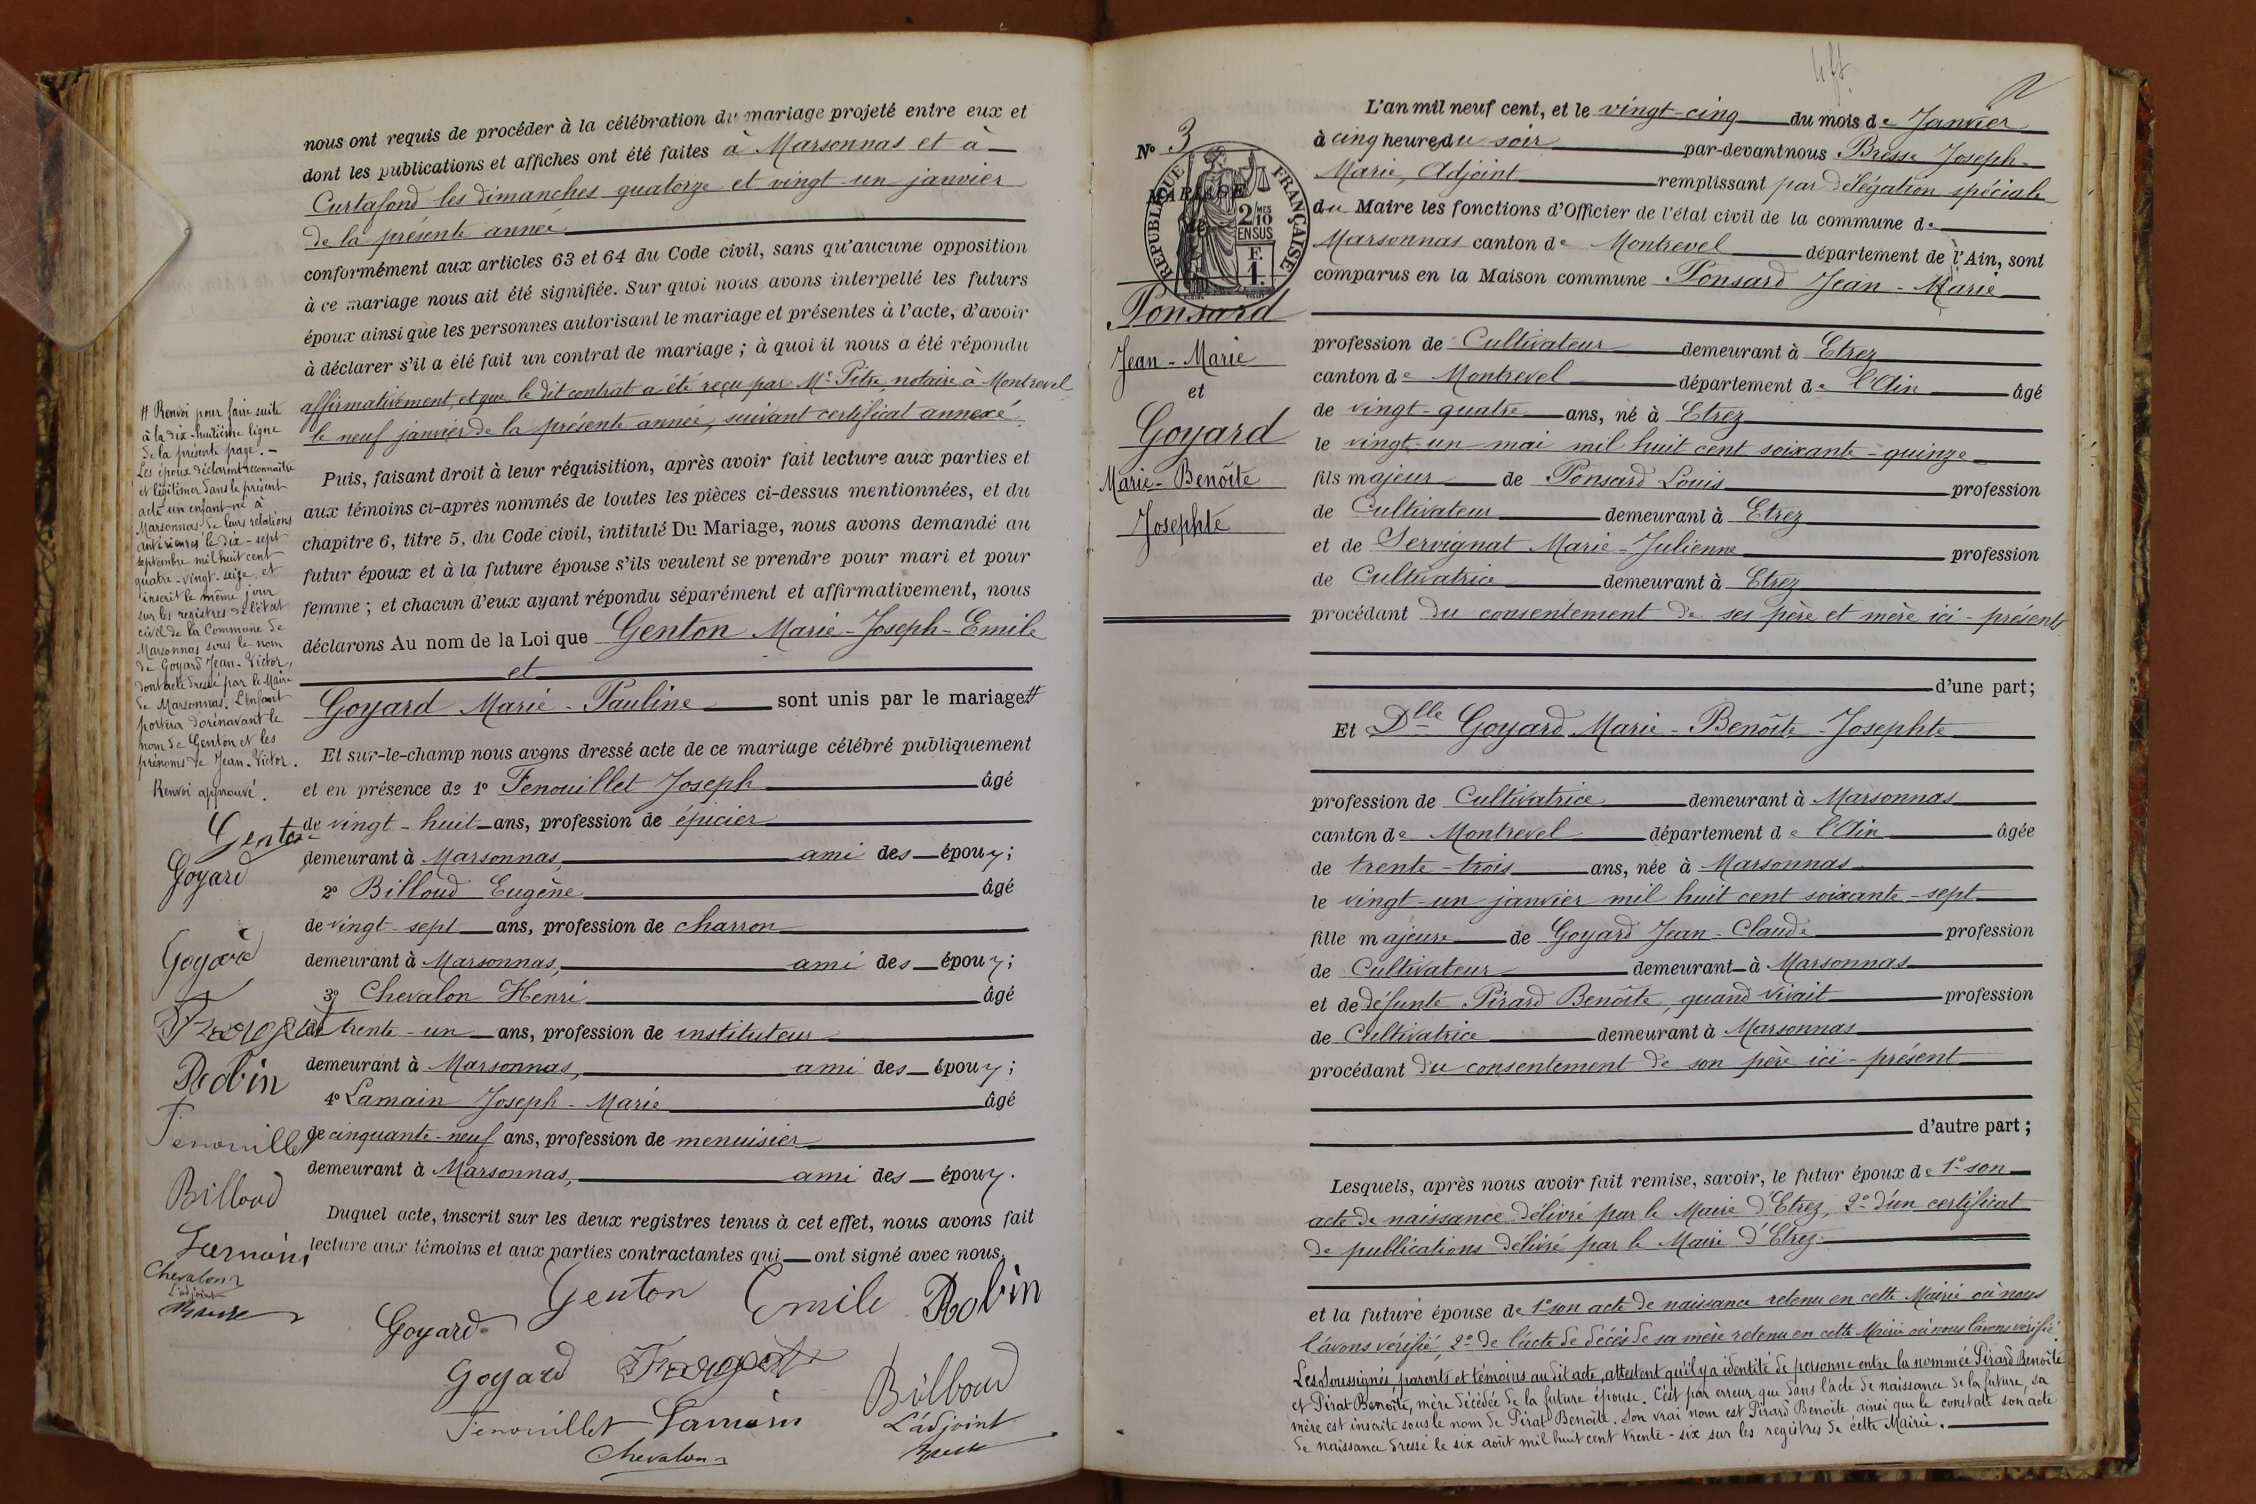 nous ont requis de procéder à la célébration du mariage projeté entre eux et
dont les publications et affiches ont été faites à Marsonnas et à
Curtafond les dimanches quatorze et vingt-un janvier
de la présente année
conformément aux articles 63 et 64 du Code civil, sans qu'aucune opposition
à ce mariage nous ait été signifiée. Sur quoi nous avons interpellé les futurs
époux ainsi que les personnes autorisant le mariage et présentes à l'acte, d'avoir
à déclarer s'il a été fait un contrat de mariage ; à quoi il nous a été répondu
affirmativement, et que le dit contrat a été reçu par Me Pitre notaire à Montrevel
le neuf janvier de la présente année, suivant certificat annexé.
Puis, faisant droit à leur réquisition, après avoir fait lecture aux parties et
aux témoins ci-après nommés de toutes les pièces ci-dessus mentionnées, et du
chapitre 6, titre 5, du Code civil, intitulé Du Mariage, nous avons demandé au
futur époux et à la future épouse s'ils veulent se prendre pour mari et pour
femme ; et chacun d'eux ayant répondu séparément et affirmativement, nous
déclarons Au nom de la Loi que Genton Marie-Joseph-Emile
et
Goyard Marie-Pauline sont unis par le mariage #
Et sur-le-champ nous avons dressé acte de ce mariage célébré publiquement
et en présence de 1° Fenouillet Joseph âgé
de vingt-huit ans, profession de épicier
demeurant à Marsonnas, ami des époux ;
2° Billoud Eugène âgé
de vingt-sept ans, profession de charron
demeurant à Marsonnas, ami des époux ;
3° Chevalon Henri âgé
de trente-un ans, profession de instituteur
demeurant à Marsonnas, ami des époux ;
4° Lamain Joseph-Marie âgé
de cinquante-neuf ans, profession de menuisier
demeurant à Marsonnas, ami des époux.
Duquel acte, inscrit sur les deux registres tenus à cet effet, nous avons fait
lecture aux témoins et aux parties contractantes qui ont signé avec nous.
Genton Emile Robin
Goyard
Goyard
Billoud
Fenouillet Lamain
L'adjoint
Chevalon
# Renvoi pour faire suite
à la dix-huitième ligne
de la présente page. -
Les époux déclarent reconnaître
et légitimer dans le présent
acte un enfant né à
Marsonnas de leurs relations
antérieures le dix-sept
septembre mil huit cent
quatre-vingt-seize, et
inscrit le même jour
sur les registres de l'état
civil de la Commune de
Marsonnas sous le nom
de Goyard Jean-Victor,
dont acte dressé par le Maire
de Marsonnas. L'enfant
portera dorénavant le
nom de Genton et les
prénoms de Jean-Victor.
Renvoi approuvé.
Genton
Goyard
Goyard
Robin
Fenouillet
Billoud
Lamain
Chevalon
L'adjoint
N° 3
MARIAGE
de
RÉPUBLIQUE FRANÇAISE
2/10 MES
EN SUS
F.
1.
Ponsard
Jean-Marie
et
Goyard
Marie-Benoîte
Josephte
L'an mil neuf cent, et le vingt-cinq du mois de Janvier
à cinq heures du soir par-devant nous Bresse Joseph-
Marie, Adjoint remplissant par délégation spéciale
du Maire les fonctions d'Officier de l'état civil de la commune de
Marsonnas canton de Montrevel département de l'Ain, sont
comparus en la Maison commune Ponsard Jean-Marie
profession de Cultivateur demeurant à Etrez
canton de Montrevel département de l'Ain âgé
de vingt-quatre ans, né à Etrez
le vingt-un mai mil huit cent soixante-quinze
fils majeur de Ponsard Louis profession
de Cultivateur demeurant à Etrez
et de Servignat Marie-Julienne profession
de Cultivatrice demeurant à Etrez
procédant du consentement de ses père et mère ici-présents
d'une part ;
Et Dlle Goyard Marie-Benoîte-Josephte
profession de Cultivatrice demeurant à Marsonnas
canton de Montrevel département de l'Ain âgée
de trente-trois ans, née à Marsonnas
le vingt-un janvier mil huit cent soixante-sept
fille majeure de Goyard Jean-Claude profession
de Cultivateur demeurant à Marsonnas
et de défunte Pirard Benoîte, quand vivait profession
de Cultivatrice demeurant à Marsonnas
procédant du consentement de son père ici-présent
d'autre part ;
Lesquels, après nous avoir fait remise, savoir, le futur époux de 1° son
acte de naissance délivré par le Maire d'Etrez, 2° d'un certificat
de publications délivré par le Maire d'Etrez.
et la future épouse de 1° son acte de naissance retenu en cette Mairie où nous
l'avons vérifié, 2° de l'acte de décès de sa mère retenu en cette Mairie où nous l'avons vérifié.
Les soussignés, parents et témoins au dit acte, attestent qu'il y a identité de personne entre la nommée Pirard Benoîte
et Pirat Benoîte, mère décédée de la future épouse. C'est par erreur que dans l'acte de naissance de la future, sa
mère est inscrite sous le nom de Pirat Benoîte. Son vrai nom est Pirard Benoîte ainsi que le constate son acte
de naissance dressé le six août mil huit cent trente-six sur les registres de cette Mairie.